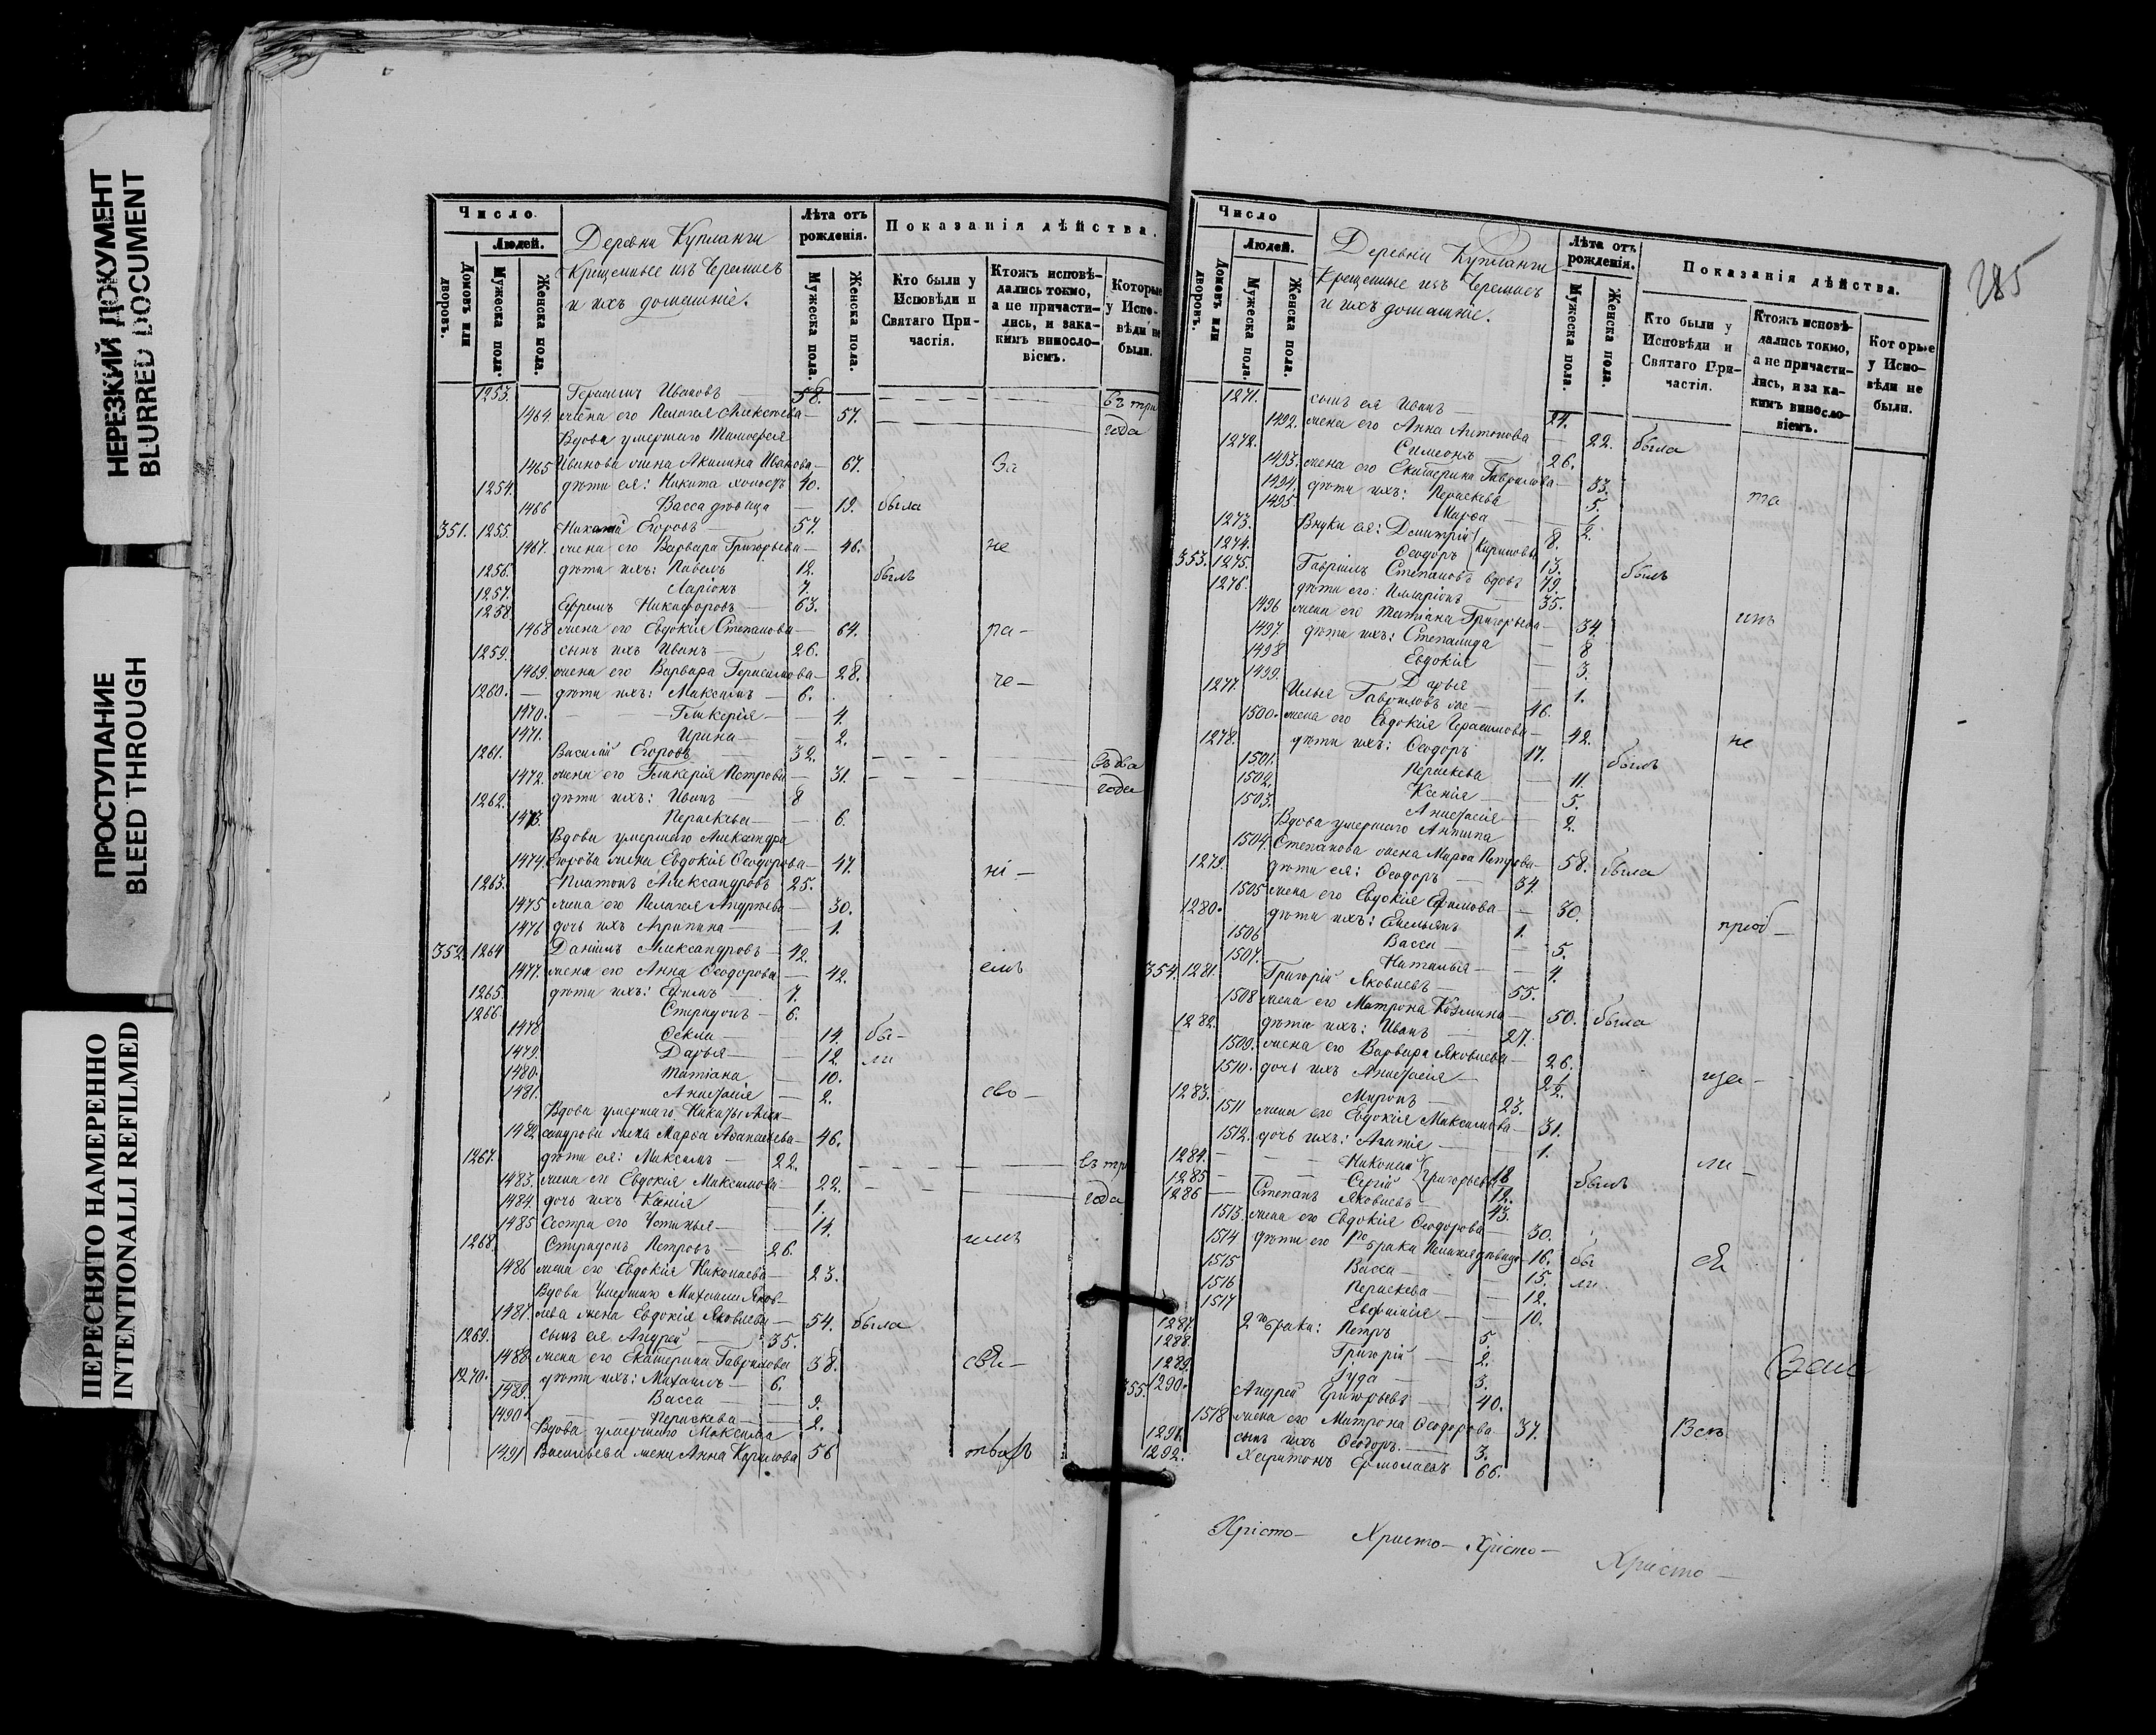 НЕРЕЗКИЙ ДОКУМЕНТ
BLURRED DOCUMENT
ПРОСТУПАНИЕ
BLEED THROUGH
ПЕРЕСНЯТО НАМЕРЕННО
INTENTIONALLI REFILMED
Число
Людей.
Домовъ или дворовъ.
Мужеска пола.
Женска пола.
Деревни Купланги
Крещеныее изъ Черемисъ
и ихъ домашніе.
Лѣта отъ рожденія.
Мужеска пола.
Женска пола.
Показанія дѣйства.
Кто были у Исповѣди и Святаго Причастія.
Ктожъ исповѣдались токмо, а не причастились, и за какимъ винословіемъ.
Которые у Исповѣди не были.
1253. Герасимъ Ивановъ 58. въ три
1464. жена его Пелагея Алексѣева 57. года
Вдова умершаго Тимоѳея
1465 Иванова жена Акилина Иванова 67. За
1254. дѣти ея: Никита холостъ 40.
1466 Васса дѣвица 19. была
351. 1255. Николай Егоровъ 57.
1467. жена его Варвара Григорьева 46. не
1256. дѣти ихъ: Павелъ 12. былъ
1257. Ларіонъ 7.
1258 Ефремъ Никифоровъ 63.
1468 жена его Евдокія Степанова 64. ра-
1259. сынъ ихъ Иванъ 26.
1469. жена его Варвара Герасимова 28.
1260. дѣти ихъ: Максимъ 6. че-
1470. Гликерія 4.
1471. Ирина 2.
1261. Василій Егоровъ 32. въ два
1472. жена его Гликерія Петрова 31. года
1262. дѣти ихъ: Иванъ 8
1473. Параскева 6.
Вдова умершаго Александра
1474. Егорова жена Евдокія Ѳеодорова 47. ні-
1263. Платонъ Александровъ 25.
1475 жена его Пелагея Андреева 30.
1476 дочь ихъ Агрипина 1.
352. 1264 Даніилъ Александровъ 42.
1477. жена его Анна Ѳеодорова 42. емъ
1265. дѣти ихъ: Ефимъ 7.
1266. Спиридонъ 6.
1478 Ѳекла 14. бы-
1479. Дарья 12. ли
1480. Татіана 10.
1481. Анастасія 2. сво-
Вдова умершаго Никиты Алек-
1482 сандрова жена Марѳа Аѳанасьева 46.
1267. дѣти ея: Максимъ 22. въ три
1483. жена его Евдокія Максимова 22. года
1484. дочь ихъ Ксенія 1.
1485 Сестра его Устинья 14.
1268. Спиридонъ Петровъ 26.
1486 жена его Евдокія Николаева 23.
Вдова Умершаго Михаила Яков-
1487. лева жена Евдокія Яковлева 54. была
1269. сынъ ея Андрей 35.
1488 жена его Екатерина Гаврилова 38. свя-
1270. дѣти ихъ: Михаилъ 6.
1489. Васса 9.
1490 Параскева 2.
Вдова умершаго Максима
1491 Васильева жена Анна Карпова 56
285
Число
Людей.
Домовъ или дворовъ.
Мужеска пола.
Женска пола.
Деревни Купланги
Крещеные изъ Черемисъ
и ихъ домашніе.
Лѣта отъ рожденія.
Мужеска пола.
Женска пола.
Показанія дѣйства.
Кто были у Исповѣди и Святаго Причастія.
Ктожъ исповѣдались токмо, а не причастились, и за какимъ винословіемъ.
Которые у Исповѣди не были.
1271. сынъ ея Иванъ 24.
1492. жена его Анна Антонова 22. была
1272. Симеонъ 26.
1493. жена его Екатерина Гаврилова 33.
1494. дѣти ихъ: Параскева 5. та
1495. Марѳа 1/2.
1273. Внуки ея: Дмитрій 8.
1274. Ѳеодоръ 13.
353. 1275. Гавріилъ Степановъ вдовъ 79. былъ
1276. дѣти его: Илларіонъ 35.
1496 жена его Татіана Григорьева 34.
1497. дѣти ихъ: Степанида 8
1498 Евдокія 3.
1499. Дарья 1.
1277. Илья Гавриловъ 46.
1500. жена его Евдокія Герасимова 42. не
1278. дѣти ихъ: Ѳеодоръ 17. былъ
1501. Параскева 11.
1502. Ксенія 5.
1503. Анастасія 2.
Вдова умершаго Антипа
1504. Степанова жена Марѳа Петрова 58. была
1279. дѣти ея: Ѳеодоръ 34
1505 жена его Евдокія Ефимова 30.
1280. дѣти ихъ: Емельянъ 1. преоб-
1506 Васса 5.
1507. Наталья 4.
354. 1281. Григорій Яковлевъ 55.
1508 жена его Матрона Козмина 50. была
1282. дѣти ихъ: Иванъ 27.
1509. жена его Варвара Яковлева 26.
1510. дочь ихъ Анастасія 2 1/2.
1283. Миронъ 23.
1511 жена его Евдокія Максимова 31.
1512. дочь ихъ: Агапія 1.
1284. Николай 18 ли-
1285 Сергій Григорьевы 12. былъ
1286 Степанъ Яковлевъ 43.
1513. жена его Евдокія Ѳеодорова 30.
1514 дѣти его 1го брака Пелагея дѣвица 16. бы
1515 Васса 15. ли
1516 Параскева 12.
1517 Евфимія 10.
1287. 2го брака: Петръ 5.
1288. Григорій 2.
1289. Іуда 3.
355. 1290. Андрей Григорьевъ 40.
1518 жена его Матрона Ѳеодорова 37.
1291. сынъ ихъ Ѳеодоръ. 3.
1292. Харитонъ Ермолаевъ 66.
Христо- Христо- Христо- Христо-